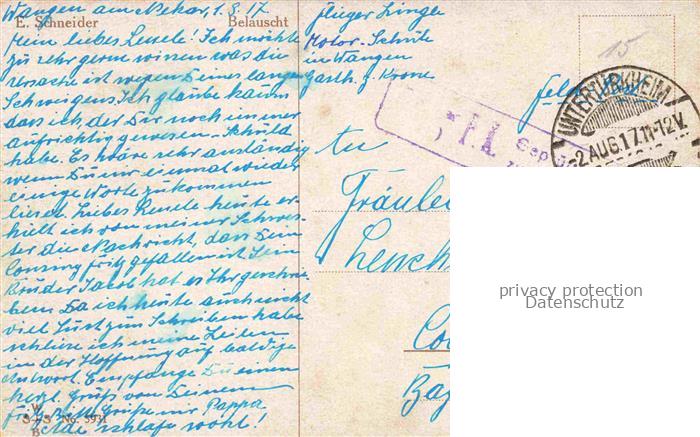 Wangen am Nekar, 1.8.17
E. Schneider Belauscht
Mein liebes Lenele! Ich möchte
zu sehr gerne wissen was die
Ursache ist wegen Deines langen
Schweigens. Ich glaube kaum
dass ich, der Dir noch immer
aufrichtig gewesen, Schuld
habe. Es wäre sehr anständig
wenn Du mir einmal wieder
einige Worte zukommen
liesest. Liebes Lenele heute er-
hielt ich von meiner Schwes-
ter die Nachricht, dass Dein
Cousing Fritz gefallen ist. Sein
Bruder Jacob hat es Ihr geschrie
ben. Da ich heute auch nicht
viel Lust zum Schreiben habe
schliese ich meine Zeilen
in der Hoffnung auf baldige
Antwort. Empfange Du einen
herzl. Gruß von Deinem
Fritz. Grüße mir Pappa
schlafe wohl!
W
S S No. 5931
B
Flieger
Motor-Schule
in Wangen
Gasth. z. Krone
15
Feldpost
UNTERTÜRKHEIM
-2.AUG.17.11-12V.
An
Fräulei
Lench
Co
privacy protection
Datenschutz